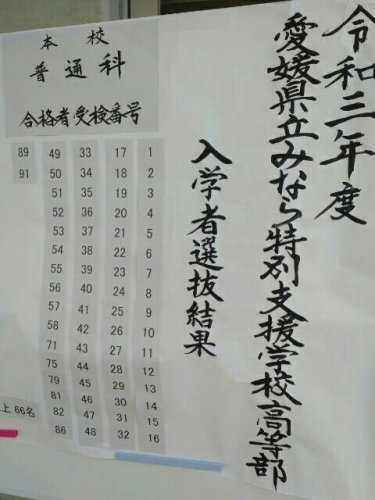 令和三年度
愛媛県立みなら特別支援学校高等部
入学者選抜結果
本校
普通科
合格者受検番号
89 49 33 17 1
91 50 34 18 2
51 35 19 3
52 36 20 4
53 37 21 5
54 38 22 6
55 39 23 7
56 40 24 8
57 41 25 9
58 42 26 10
71 43 27 11
75 44 28 12
79 45 29 13
81 46 30 14
82 47 31 15
86 48 32 16
上 66名